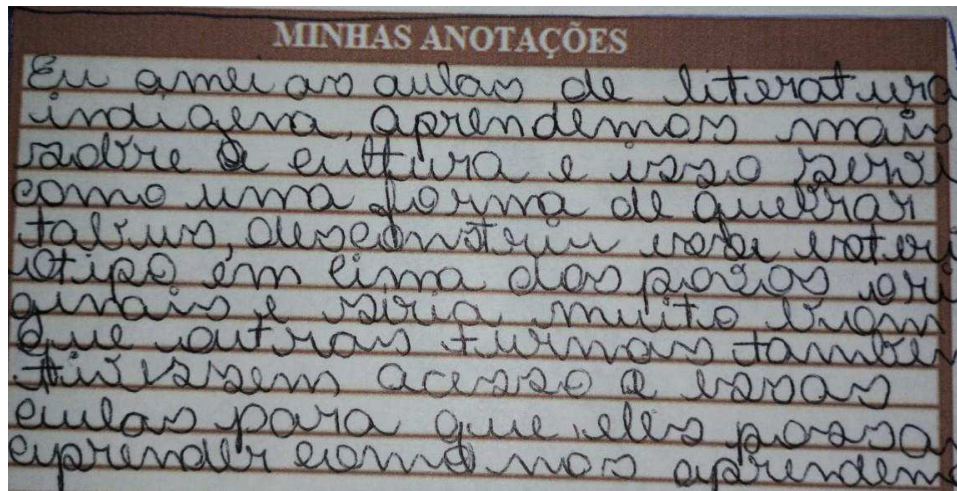 MINHAS ANOTAÇÕES
Eu amei as aulas de literatura
indigena, aprendemos mais
sobre a cultura e isso servi
como uma forma de quebrar
tabus, desconstruir esse esteri
otipo em cima dos povos ori
ginais e seria muito bom
que outras turmas também
tivessem acesso a essas
aulas para que eles possa
aprender como nos aprendem